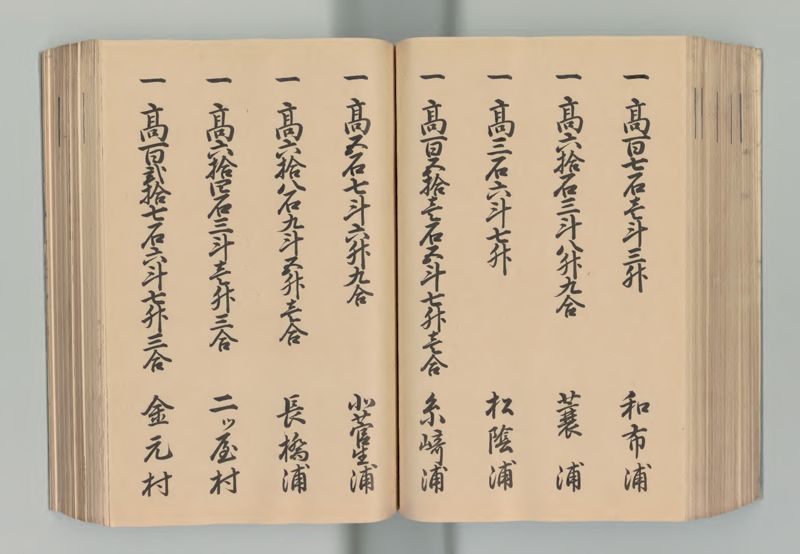 一 髙百七石壱斗三升 和布浦
一 髙六拾石三斗八升九合 蓑浦
一 髙三石六斗七升 松陰浦
一 髙百五拾壱石五斗七升壱合 糸﨑浦
一 髙五石七斗六升九合 小菅生浦
一 髙六拾八石九斗五升壱合 長橋浦
一 髙六拾四石三斗壱升三合 二ッ屋村
一 髙百弐拾七石六斗七升三合 金元村